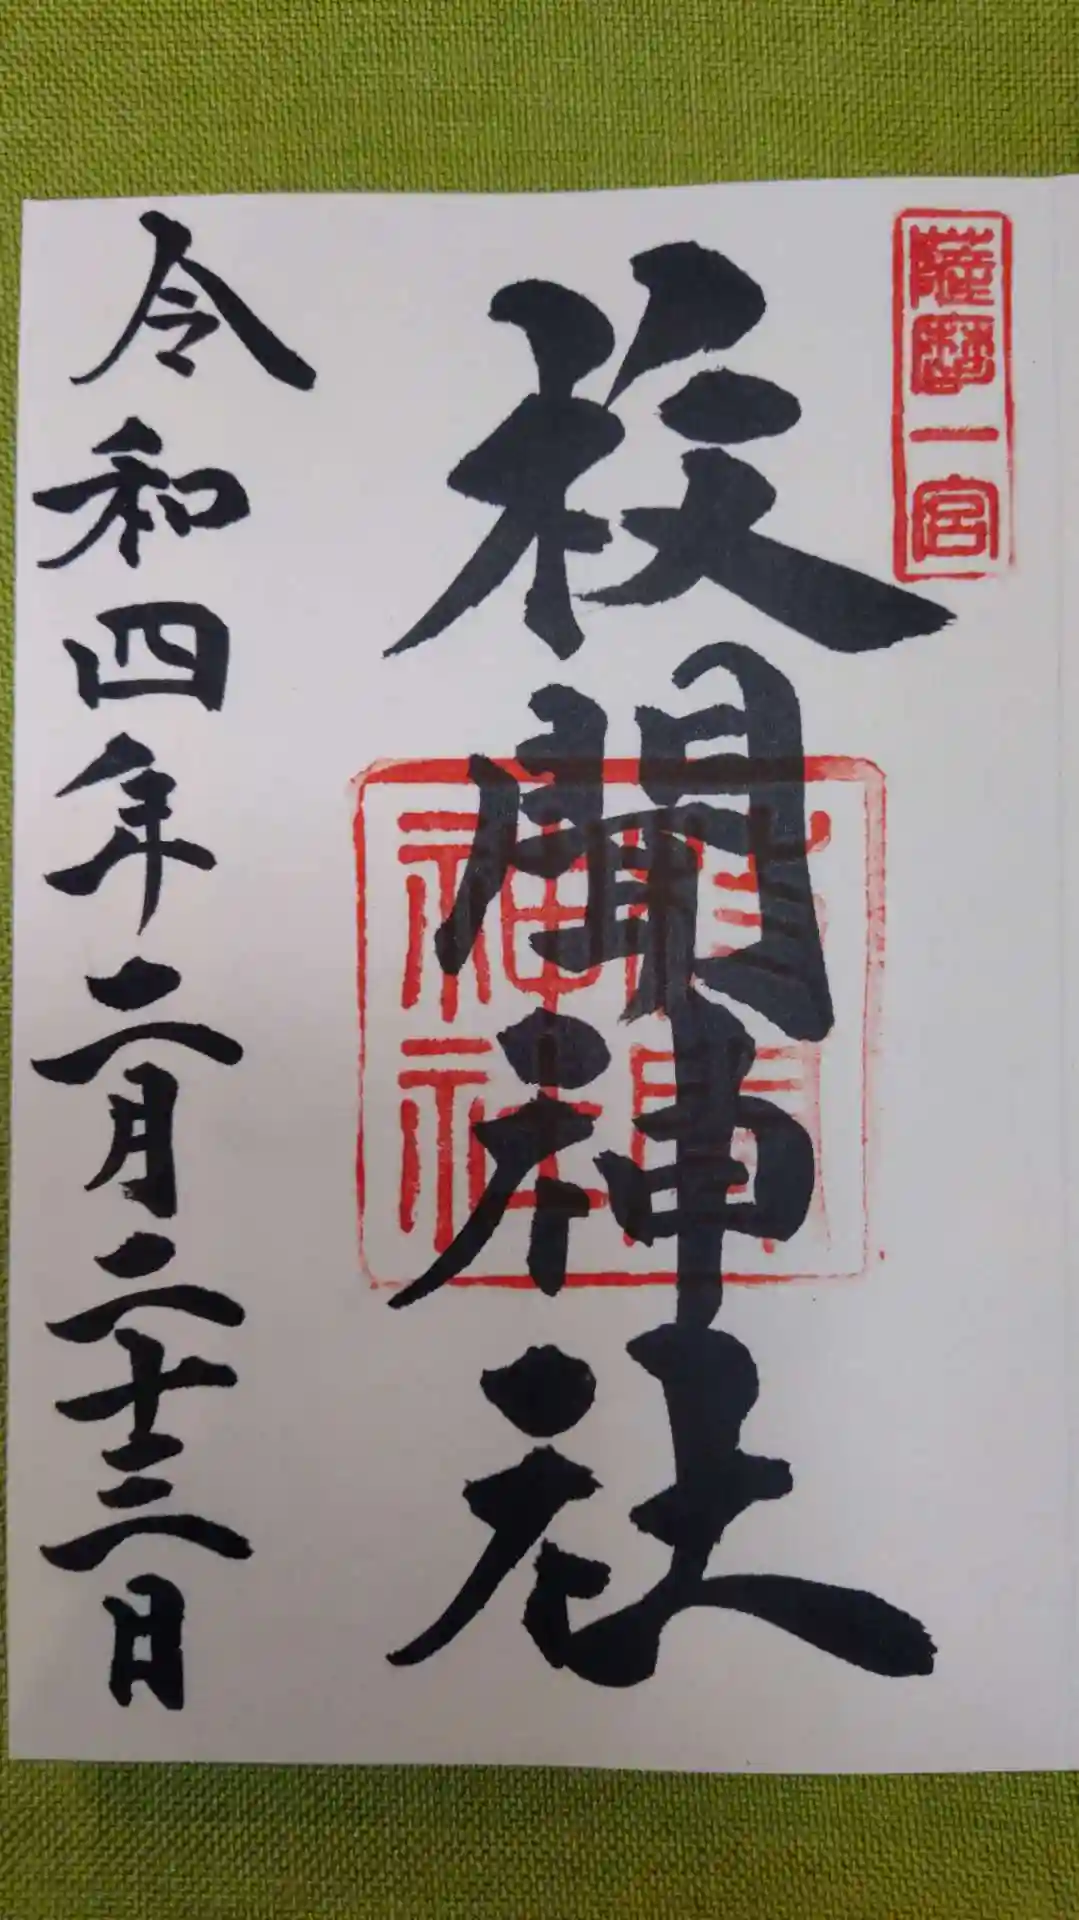 薩摩一宮
枚聞神社
枚聞神社
令和四年二月二十三日